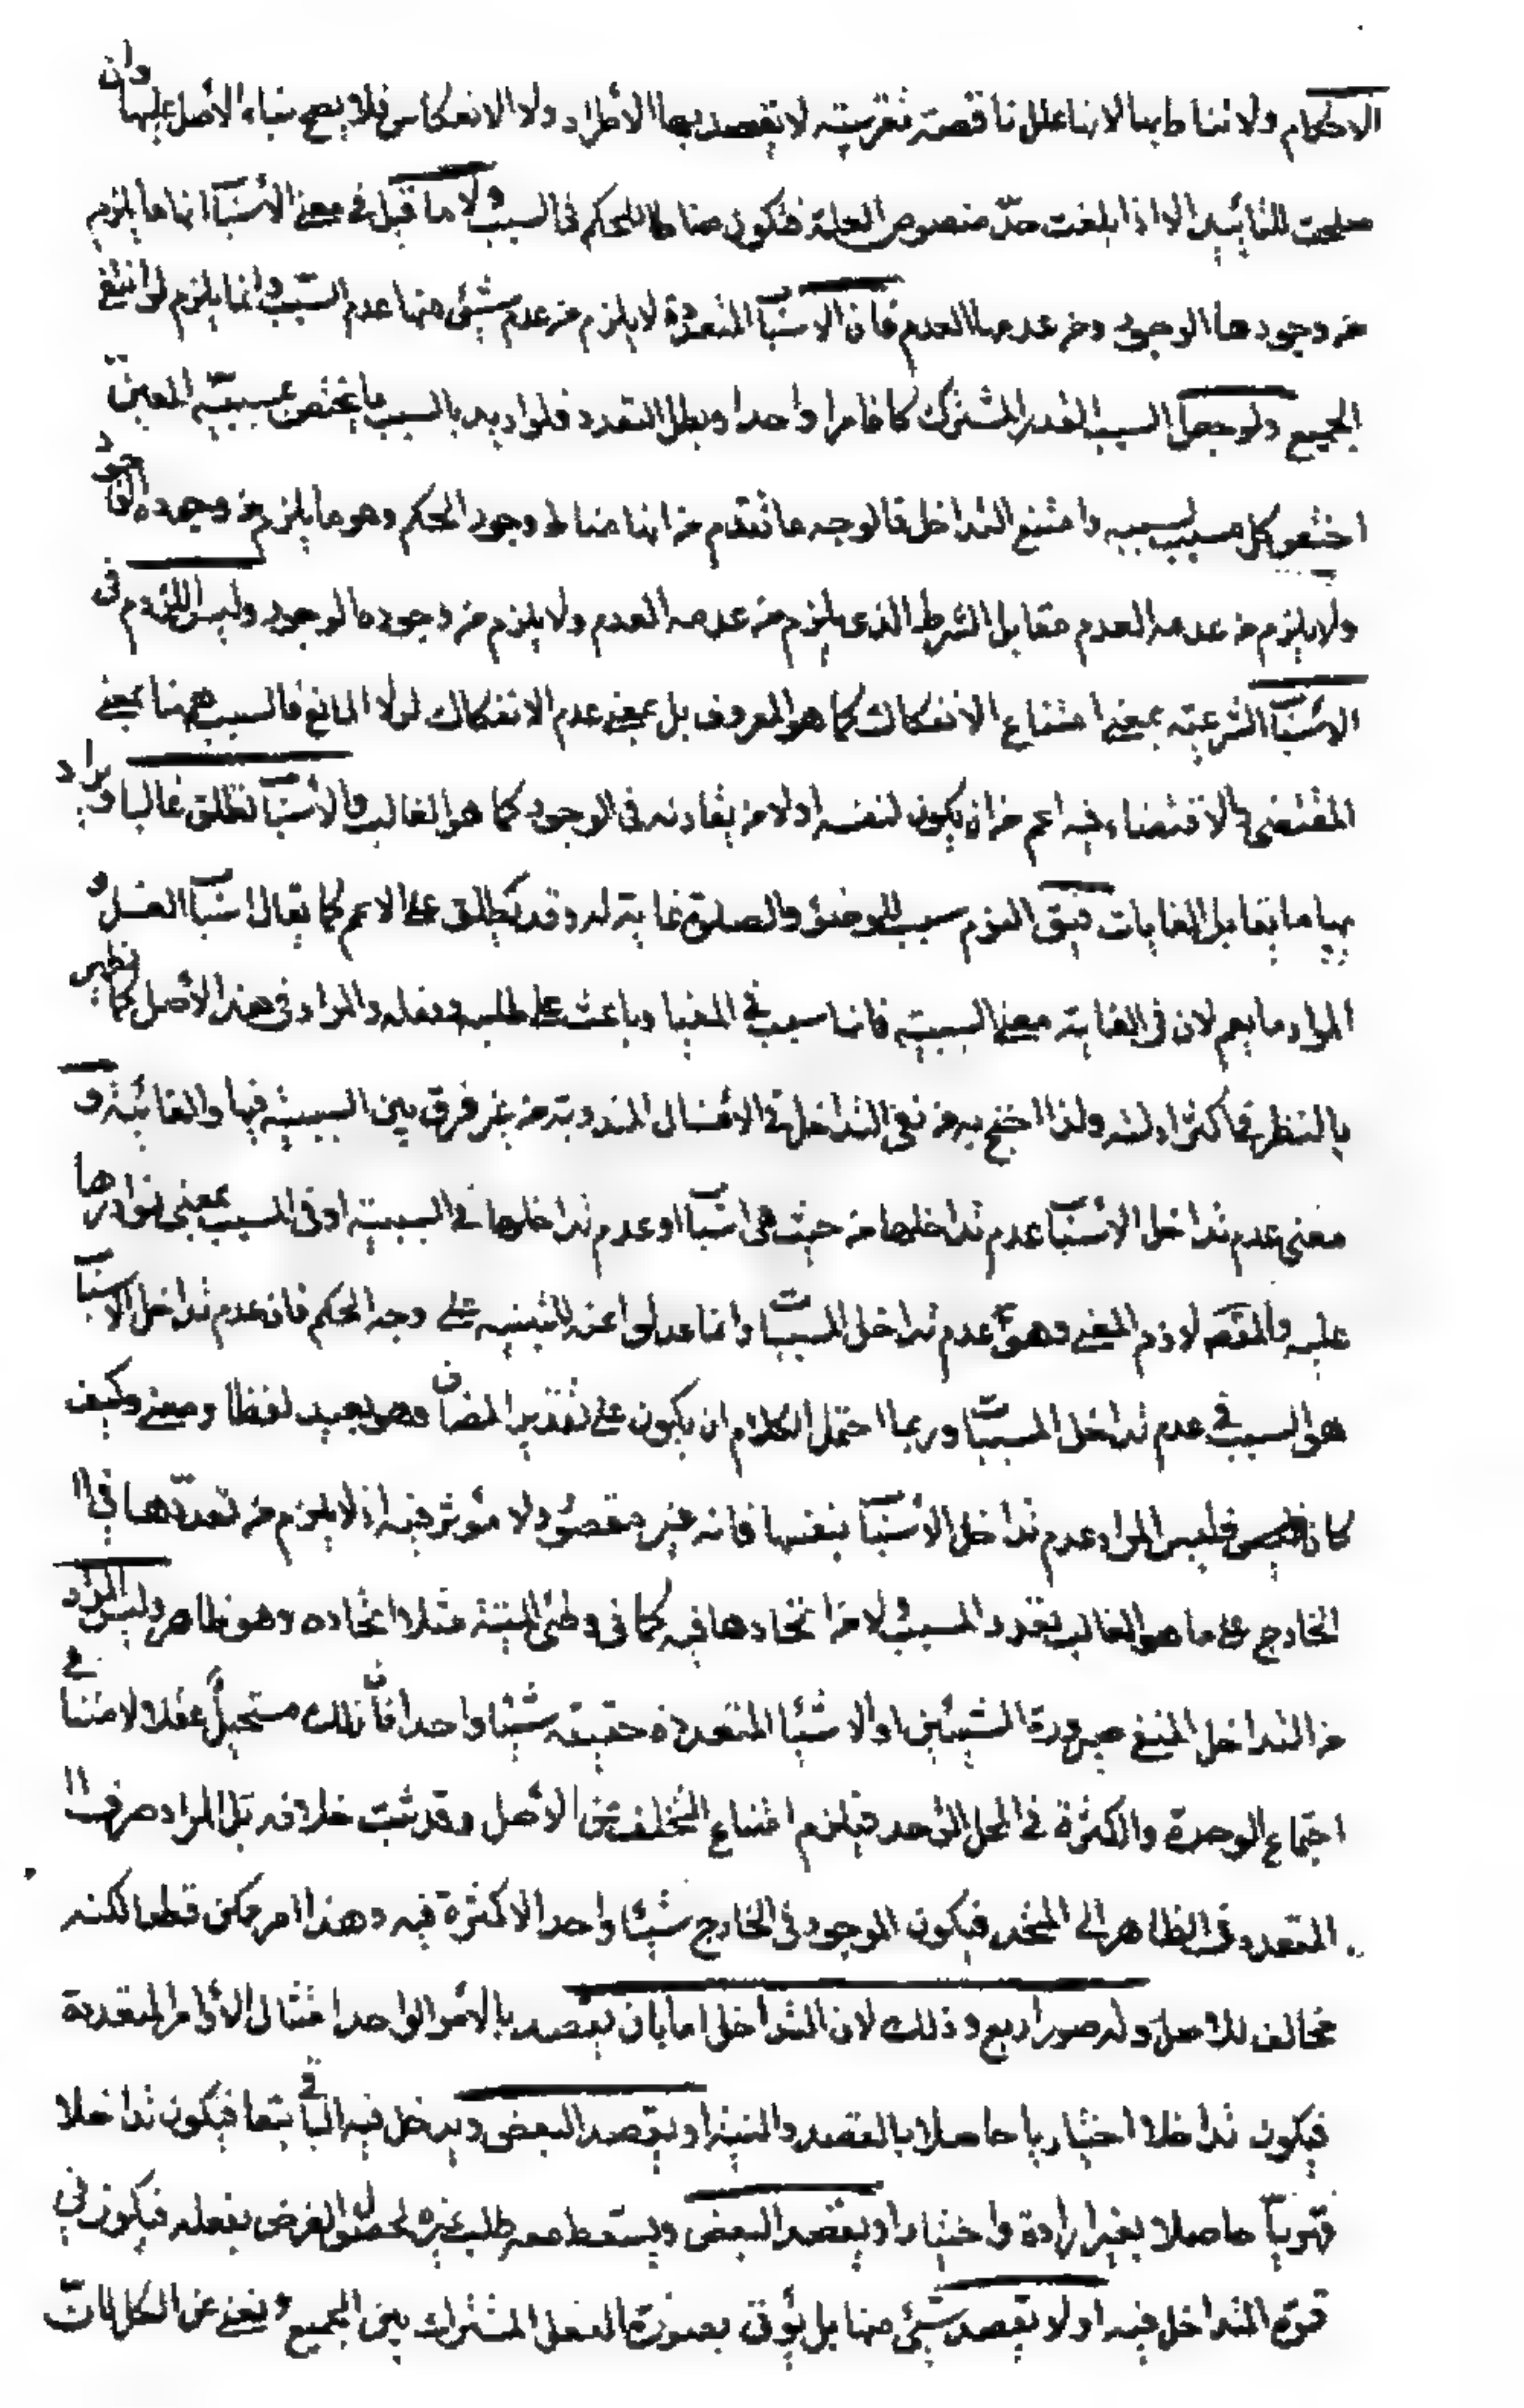 الاحكام ولا مناطاتها لانها علل ناقصة تقريبية لا يقصد بها الاطراد ولا الانعكاس فلا يصح بناء الاصل عليها وان
صلحت للتأييد الا اذا بلغت حدّ منصوص العلة فتكون مناطا للحكم فالسبب ولا ما قيل في معنى الأسباب انما ما يلزم
من وجودها الوجود ومن عدمها العدم فان الاسباب المتعددة لا يلزم من عدم شئ منها عدم المسبب وانما يلزم لو انتفى
الجميع ولو جعل السبب القدر المشترك كان امرا واحدا وبطل التعدد فلو اريد بالسبب ما يختص بمسببيته المعين
اختص كل مسبب بسببه وامتنع التداخل فالوجه ما تقدم من انها مناط وجود الحكم وهو ما يلزم من وجوده الوجود
ولا يلزم من عدمه العدم مقابل الشرط الذى يلزم من عدمه العدم ولا يلزم من وجوده الوجود وليس اللزوم فى
الاسباب الشرعية بمعنى امتناع الانفكاك كما هو المعروف بل بمعنى عدم الانفكاك لولا المانع فالسبب ههنا بمعنى
المقتضى والاقتضاء فيه اعم من ان يكون لنفسه او لامر يقارنه فى الوجود كما هو الغالب والأسباب تطلق غالبا ويراد
بها ما يقابل الغايات فيق النوم سبب للوضوء والصلوة غاية له وقد يطلق على الاعم كما يقال اسباب الغسل و
المراد ما يعم لان فى الغاية معنى السببية فانها سبب في المغيا وباعث على طلبه وفعله والمراد فى هذا الأصل كما يظهر
بالنظر في اكثر ادلته ولذا احتج به من نفى التداخل في الاغسال المندوبة من غير فرق بين السببية فيها والغائية و
معنى عدم تداخل الأسباب عدم تداخلها من حيث هى اسباب او عدم تداخلها في السببية او فى المسبب بمعنى تواردها
عليه والمقصود لازم المعنى وهو عدم تداخل المسببات وانما عدلوا عنه للتنبيه على وجه الحكم فان عدم تداخل الاسباب
هو السبب في عدم تداخل المسببات وربما احتمل الكلام ان يكون على تقدير المضاف وهو بعيد لفظا ومعنى وكيف
كان فليس المراد عدم تداخل الأسباب بنفسها فانه غير مقصود ولا مؤثر فيه اذ لا يلزم من تعددها في ا
لخارج على ما هو الغالب تعدد المسبب ولا من اتحادها فيه كما فى وطئ الميتة مثلا اتحاده وهو ظاهر وليس المراد
من التداخل المنفى صيرورة الشيئين او الاشياء المتعددة حقيقة شيئا واحدا فان ذلك مستحيل عقلا لامتناع
اجتماع الوحدة والكثرة في المحل الواحد فيلزم امتناع التخلف عن الأصل وقد ثبت خلافه بل المراد صرف ا
لمتعدد فى الظاهر الى المتحد فيكون الموجود فى الخارج شيئا واحدا لا كثرة فيه وهذا امر ممكن قطعا لكنه
مخالف للاصل وله صور اربع وذلك لان التداخل اما بان يقصد بالأمر الواحد امتثال الأوامر المتعددة
فيكون تداخلا اختياريا حاصلا بالقصد والنية او يقصد البعض ويدخل فيه الباقي تبعا فيكون تداخلا
قهريا حاصلا بغير ارادة واختيار او يقصد البعض ويسقط معه طلب غيره لحصول الغرض بفعله فيكون في
قوة التداخل فيه او لا يقصد شئ منها بل يؤتى بصورة الفعل المشترك بين الجميع ويغنى عن الكل